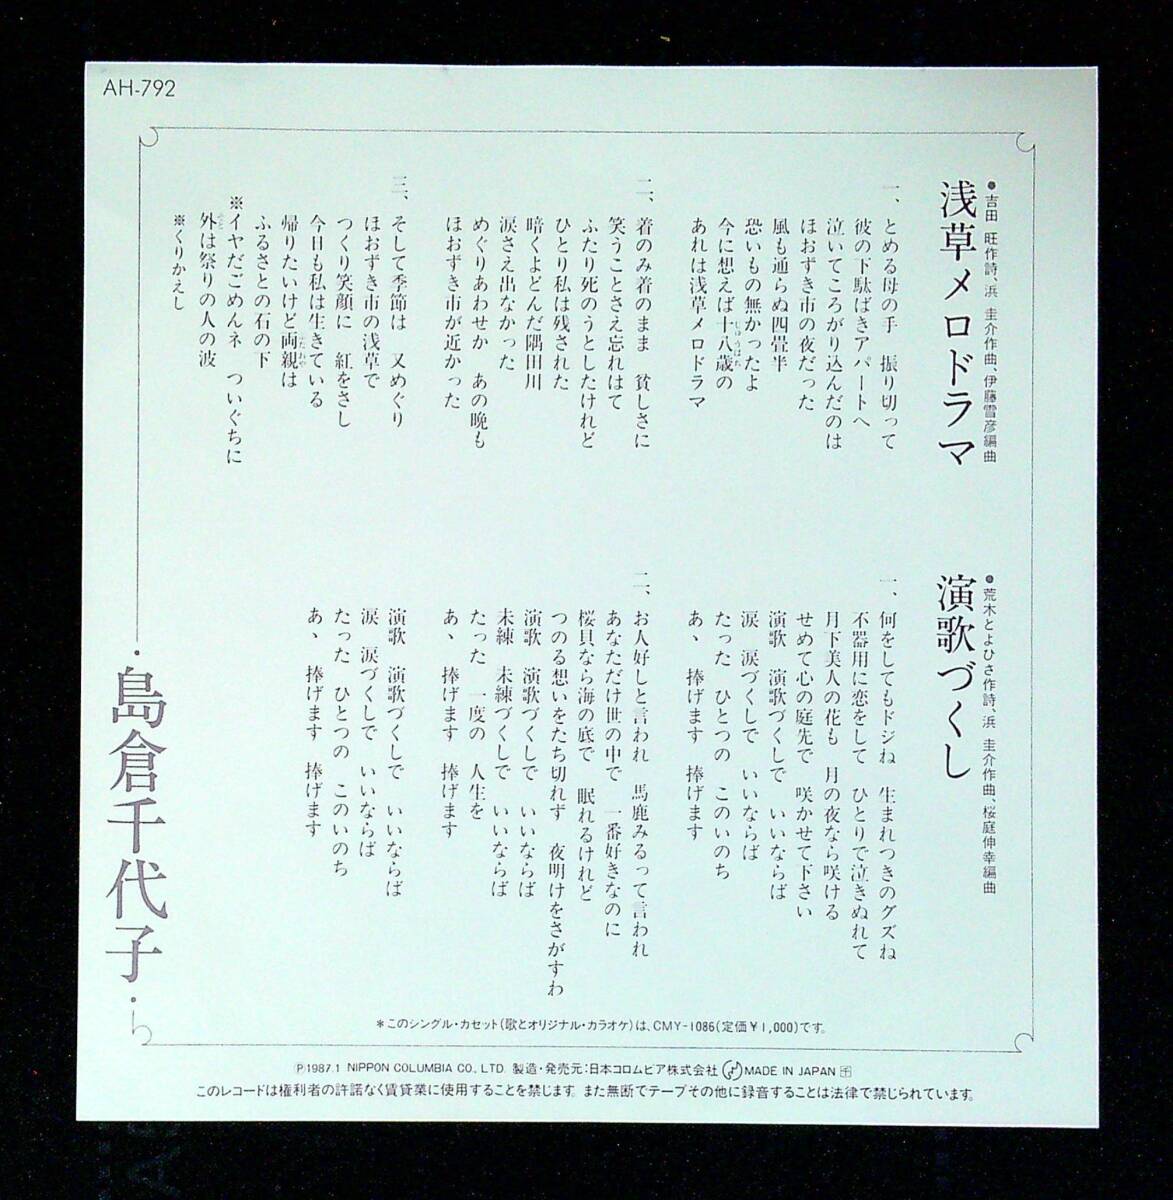 AH-792
●吉田 旺作詩、浜 圭介作曲、伊藤雪彦編曲
浅草メロドラマ
一、とめる母の手 振り切って
彼の下駄ばきアパートへ
泣いてころがり込んだのは
ほおずき市の夜だった
風も通らぬ四畳半
恐いもの無かったよ
今に想えば十八歳の
あれは浅草メロドラマ
二、着のみ着のまま 貧しさに
笑うことさえ忘れはて
ふたり死のうとしたけれど
ひとり私は残された
暗くよどんだ隅田川
涙さえ出なかった
めぐりあわせか あの晩も
ほおずき市が近かった
三、そして季節は 又めぐり
ほおずき市の浅草で
つくり笑顔に 紅をさし
今日も私は生きている
帰りたいけど両親は
ふるさとの石の下
※イヤだごめんネ ついぐちに
外は祭りの人の波
※くりかえし
●荒木とよひさ作詩、浜 圭介作曲、桜庭伸幸編曲
演歌づくし
一、何をしてもドジね 生まれつきのグズね
不器用に恋をして ひとりで泣きぬれて
月下美人の花も 月の夜なら咲ける
せめて心の庭先で 咲かせて下さい
演歌 演歌づくしで いいならば
涙 涙づくしで いいならば
たった ひとつの このいのち
あゝ 捧げます 捧げます
二、お人好しと言われ 馬鹿みるって言われ
あなただけ世の中で 一番好きなのに
桜貝なら海の底で 眠れるけれど
つのる想いをたち切れず 夜明けをさがすわ
演歌 演歌づくしで いいならば
未練 未練づくしで いいならば
たった 一度の 人生を
あゝ 捧げます 捧げます
演歌 演歌づくしで いいならば
涙 涙づくしで いいならば
たった ひとつの このいのち
あゝ 捧げます 捧げます
・島倉千代子・
＊このシングル・カセット(歌とオリジナル・カラオケ)は、CMY-1086(定価￥1,000)です。
Ⓟ1987.1 NIPPON COLUMBIA CO., LTD. 製造・発売元：日本コロムビア株式会社 MADE IN JAPAN
このレコードは権利者の許諾なく賃貸業に使用することを禁じます。また無断でテープその他に録音することは法律で禁じられています。